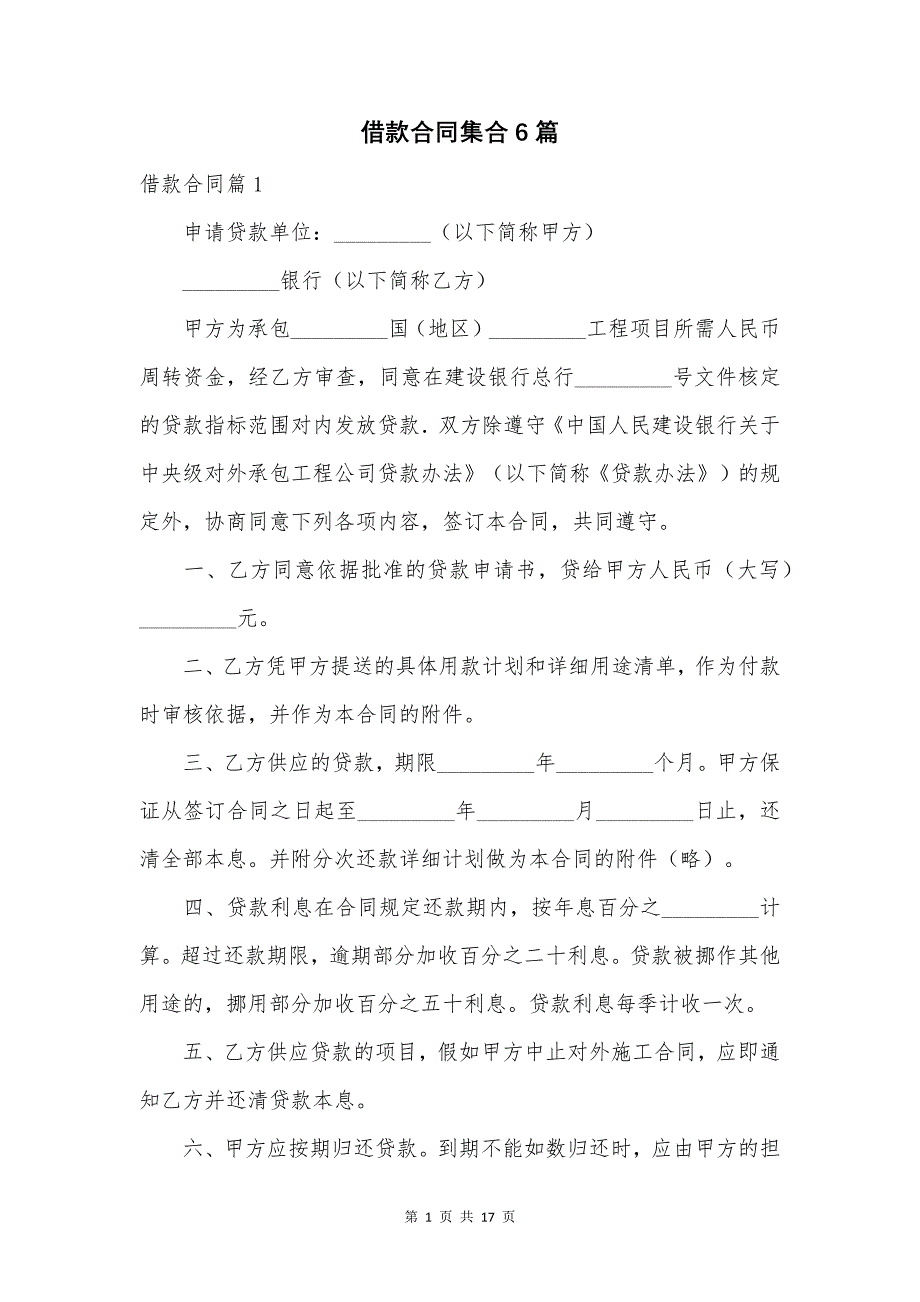 借款合同集合6篇
借款合同篇1
申请贷款单位：_________（以下简称甲方）
_________银行（以下简称乙方）
甲方为承包_________国（地区）_________工程项目所需人民币
周转资金，经乙方审查，同意在建设银行总行_________号文件核定
的贷款指标范围对内发放贷款．双方除遵守《中国人民建设银行关于
中央级对外承包工程公司贷款办法》（以下简称《贷款办法》）的规
定外，协商同意下列各项内容，签订本合同，共同遵守。
一、乙方同意依据批准的贷款申请书，贷给甲方人民币（大写）
_________元。
二、乙方凭甲方提送的具体用款计划和详细用途清单，作为付款
时审核依据，并作为本合同的附件。
三、乙方供应的贷款，期限_________年_________个月。甲方保
证从签订合同之日起至_________年_________月_________日止，还
清全部本息。并附分次还款详细计划做为本合同的附件（略）。
四、贷款利息在合同规定还款期内，按年息百分之_________计
算。超过还款期限，逾期部分加收百分之二十利息。贷款被挪作其他
用途的，挪用部分加收百分之五十利息。贷款利息每季计收一次。
五、乙方供应贷款的项目，假如甲方中止对外施工合同，应即通
知乙方并还清贷款本息。
六、甲方应按期归还贷款。到期不能如数归还时，应由甲方的担
第 1 页 共 17 页